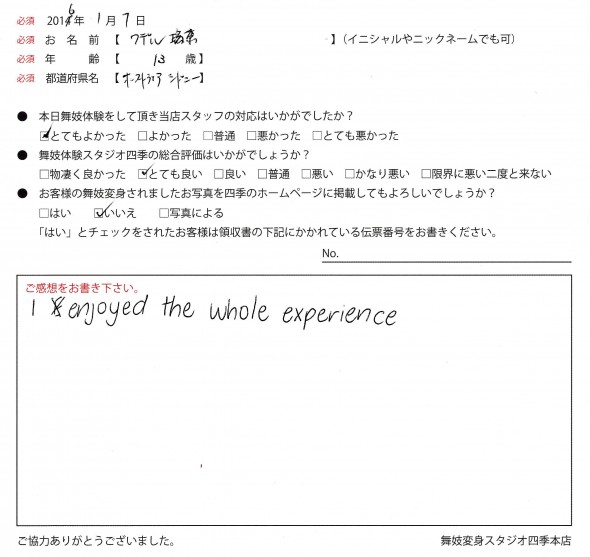 必須 2016年 1月7日
必須 お名前【 ワデル 】（イニシャルやニックネームでも可）
必須 年齢【 13 歳】
必須 都道府県名【オーストラリア シドニー】
● 本日舞妓体験をして頂き当店スタッフの対応はいかがでしたか？
☑とてもよかった □よかった □普通 □悪かった □とても悪かった
● 舞妓体験スタジオ四季の総合評価はいかがでしょうか？
□物凄く良かった ☑とても良い □良い □普通 □悪い □かなり悪い □限界に悪い二度と来ない
● お客様の舞妓変身されましたお写真を四季のホームページに掲載してもよろしいでしょうか？
□はい ☑いいえ □写真による
「はい」とチェックをされたお客様は領収書の下記にかかれている伝票番号をお書きください。
No.
ご感想をお書き下さい。
I enjoyed the whole experience
ご協力ありがとうございました。 舞妓変身スタジオ四季本店